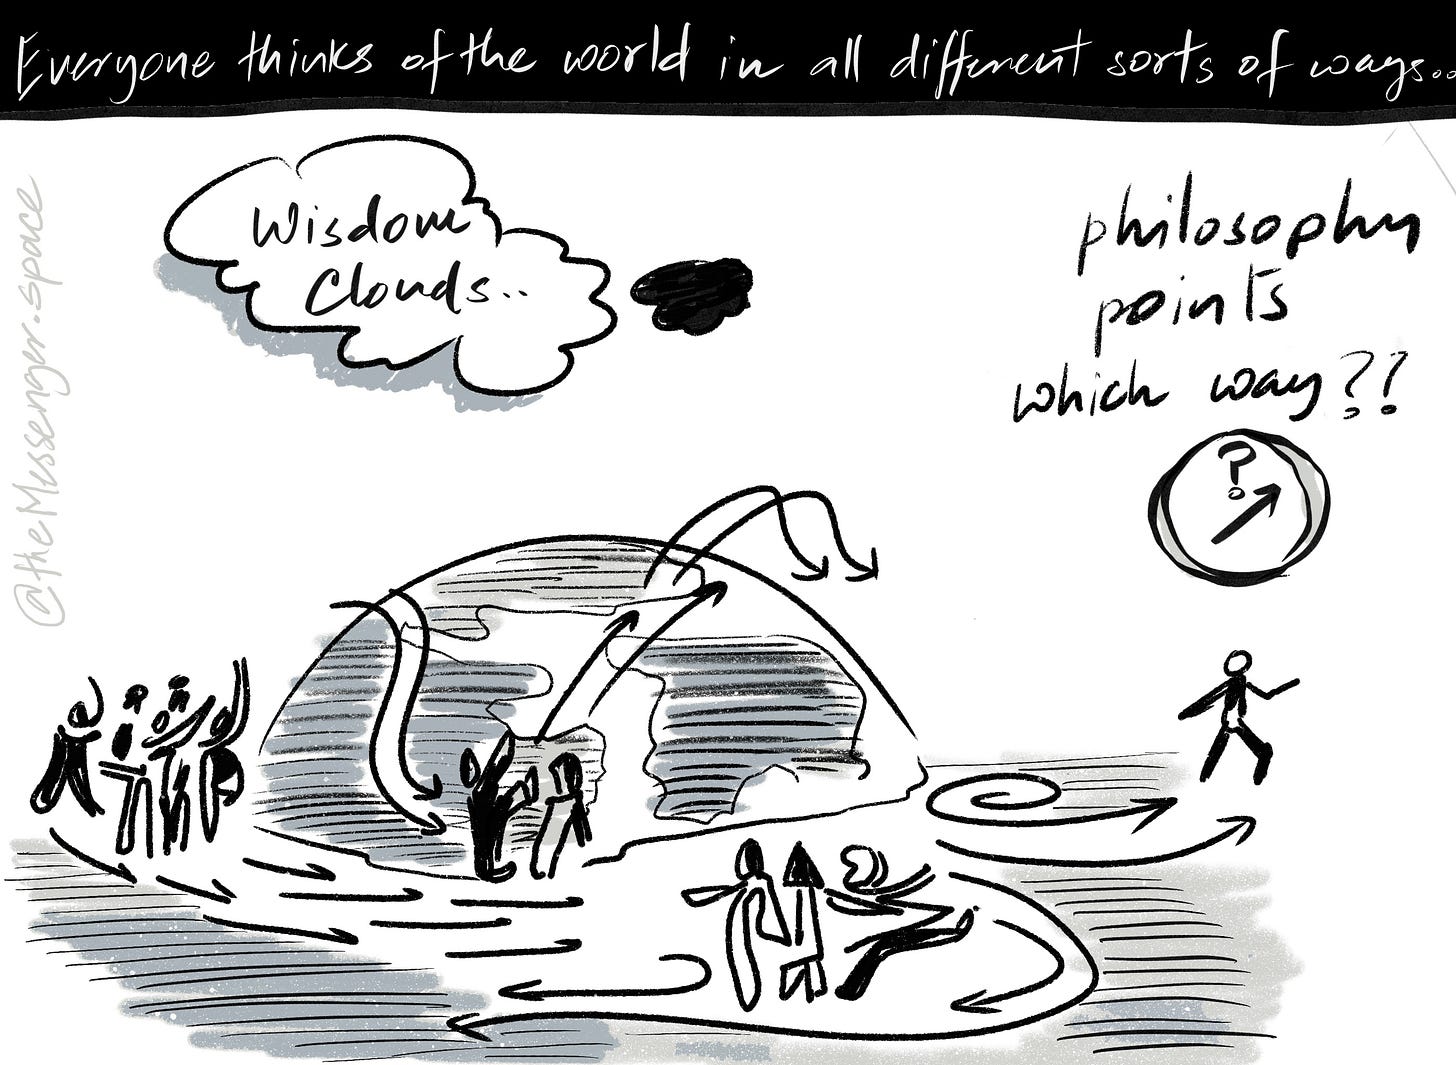 Everyone thinks of the world in all different sorts of ways...
Wisdom
Clouds..
philosophy
points
which way??
?
@theMessenger.space